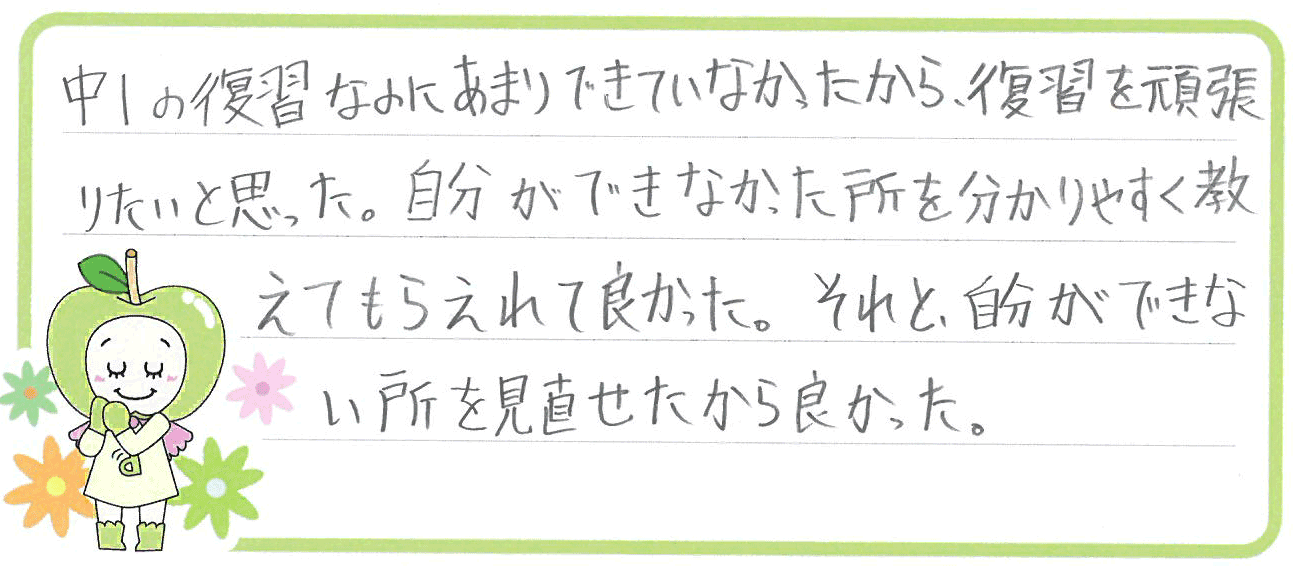 中1の復習なのにあまりできていなかったから、復習を頑張
りたいと思った。自分ができなかった所を分かりやすく教
えてもらえれて良かった。それと、自分ができな
い所を見直せたから良かった。